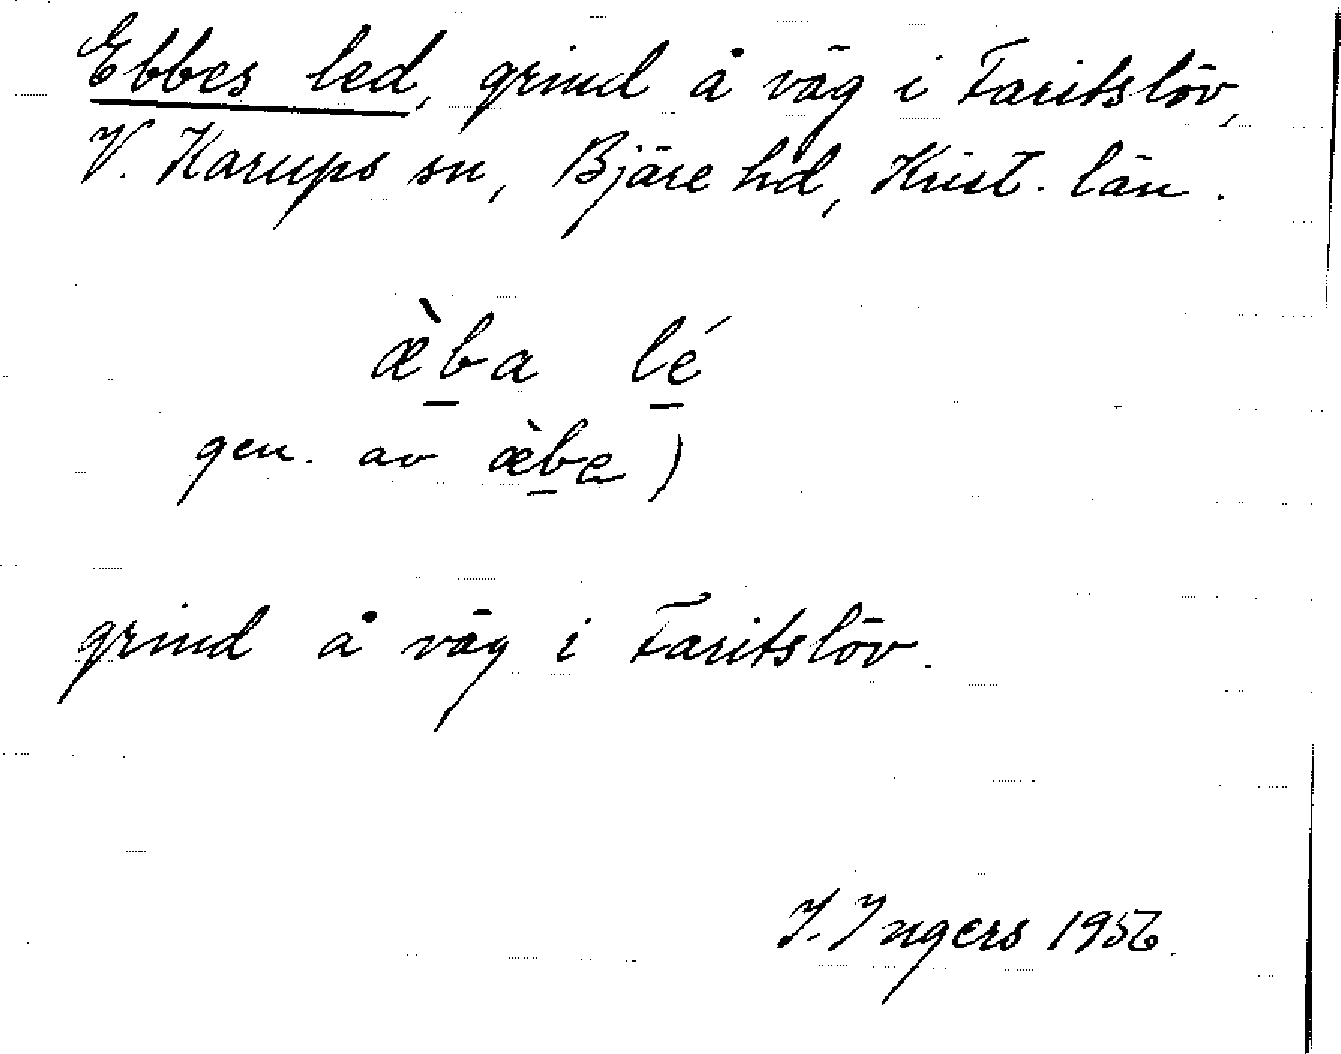 Ebbes led, grind å väg i Faritslöv,
V. Karups sn, Bjäre hd, Krist. län.
æ̀ba lé
gen. av æ̀be)
grind å väg i Faritslöv.
I. Ingers 1956.